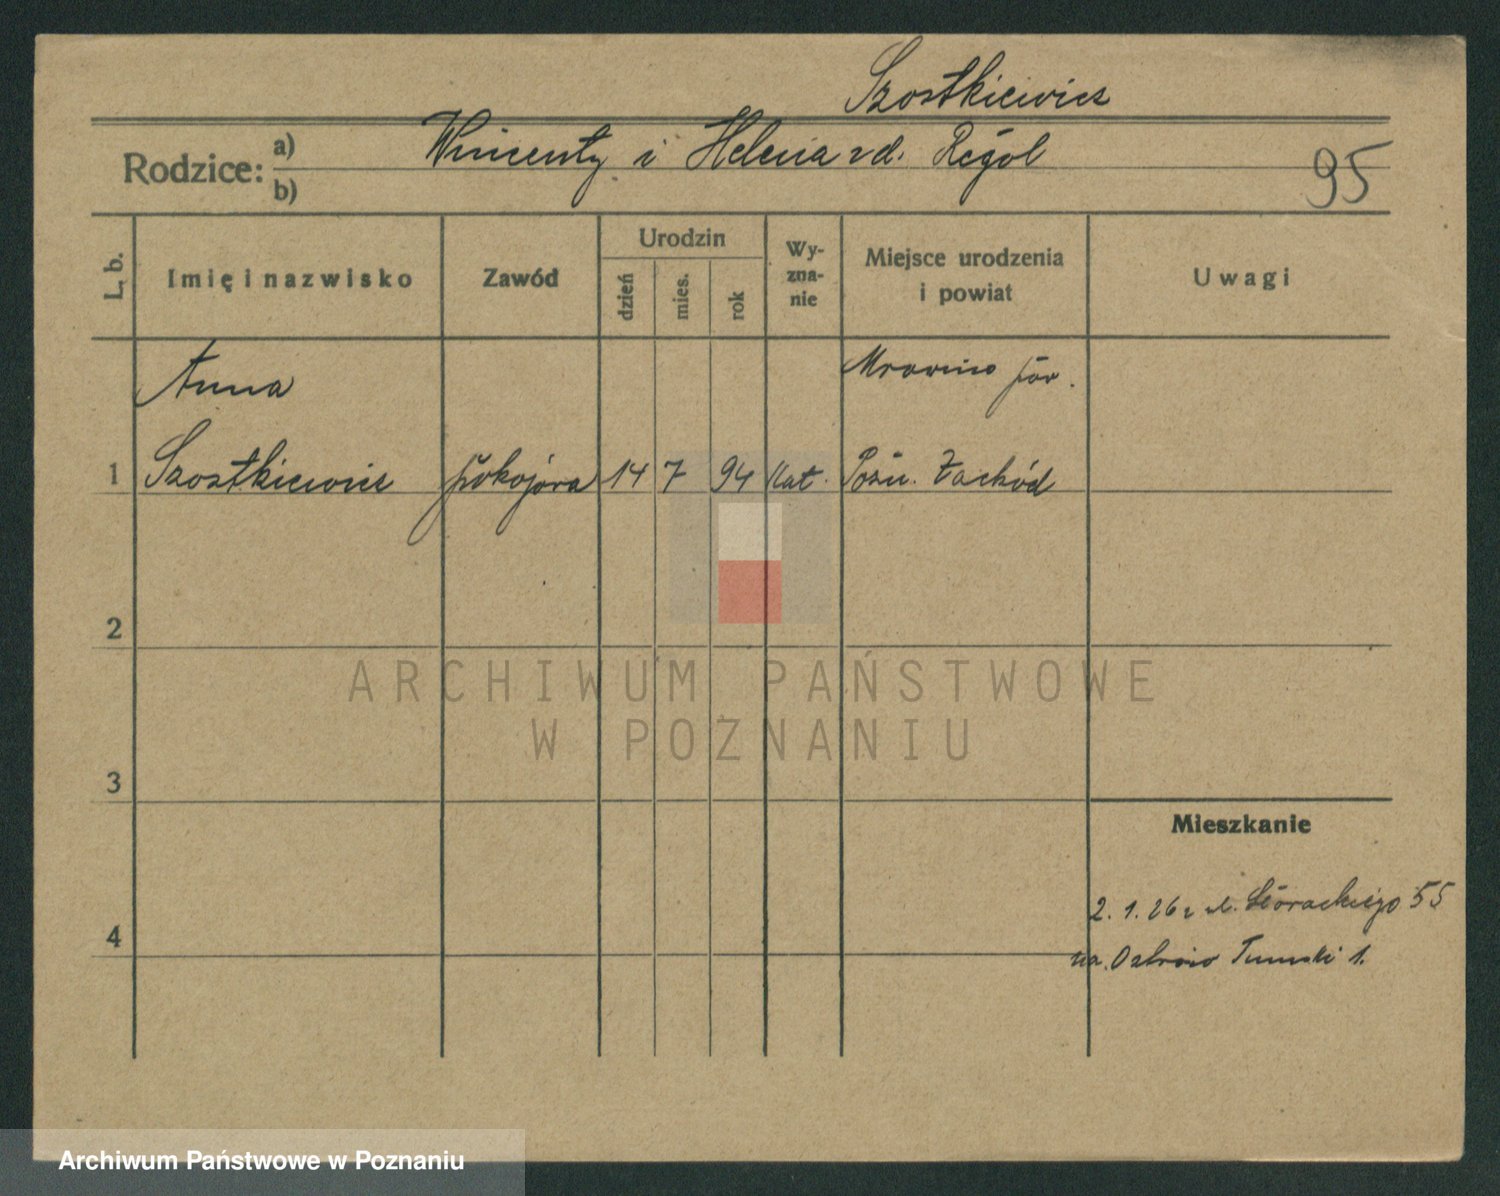 Szostkiewicz
Rodzice: a) Wincenty i Helena zd. Regol
b)
95
L. b.
Imię i nazwisko
Zawód
Urodzin
dzień
mies.
rok
Wy-
zna-
nie
Miejsce urodzenia
i powiat
Uwagi
Anna
Mrowino pow.
1 Szostkiewicz pokojowa 14 7 94 kat. Pozn. Zachód
2
ARCHIWUM PAŃSTWOWE
W POZNANIU
3
Mieszkanie
2. 1. 26 z ul. 55
4
na Ostrów Tumski 1.
Archiwum Państwowe w Poznaniu